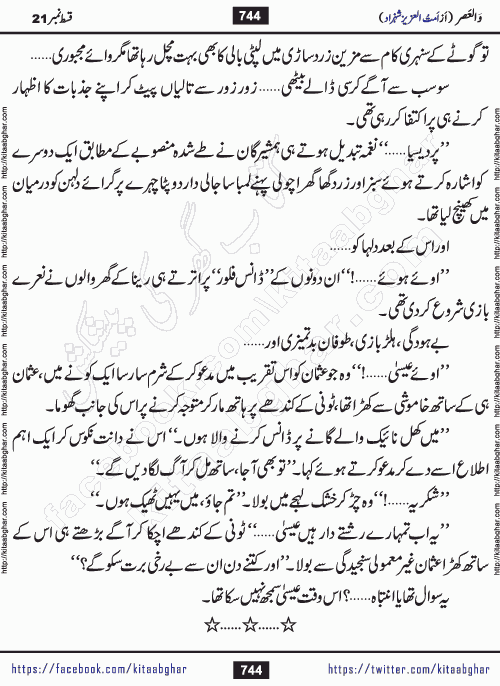 وَالعَصر (از اَمتُ العزیز شہزاد) 744 قسط نمبر 21
تو گوٹے کے سنہری کام سے مزین زرد ساڑی میں لپٹی بالی کا بھی بہت مچل رہا تھا مگر وائے مجبوری......
سو سب سے آگے کرسی ڈالے بیٹھی...... زور زور سے تالیاں پیٹ کر اپنے جذبات کا اظہار
کرنے ہی پر اکتفا کر رہی تھی۔
”پردیسیا......“ نغمہ تبدیل ہوتے ہی ہمشیرگان نے طے شدہ منصوبے کے مطابق ایک دوسرے
کو اشارہ کرتے ہوئے سبز اور زرد گھاگھرا چولی پہنے لمبا سا جالی دار دوپٹا چہرے پر گرائے دلہن کو درمیان
میں کھینچ لیا تھا۔
اور اس کے بعد دلہا کو......
”اوئے ہوئے......!“ ان دونوں کے ”ڈانس فلور“ پر اترتے ہی رینا کے گھر والوں نے نعرے
بازی شروع کر دی تھی۔
بے ہودگی، ہلڑ بازی، طوفان بدتمیزی اور......
”اوئے عیسیٰ......!“ وہ جو عثمان کو اس تقریب میں مدعو کر کے شرم سار سا ایک کونے میں، عثمان
ہی کے ساتھ خاموشی سے کھڑا تھا، ٹونی کے کندھے پر ہاتھ مار کر متوجہ کرنے پر اس کی جانب گھوما۔
”میں کھل نائیک والے گانے پر ڈانس کرنے والا ہوں۔“ اس نے دانت نکوس کر ایک اہم
اطلاع اسے دے کر مدعو کرتے ہوئے کہا۔ ”تو بھی آجا، ساتھ مل کر آگ لگا دیں گے۔“
”شکریہ......!“ وہ چڑ کر خشک لہجے میں بولا۔ ”تم جاؤ، میں یہیں ٹھیک ہوں۔“
”یہ اب تمہارے رشتے دار ہیں عیسیٰ......“ ٹونی کے کندھے اچکا کر آگے بڑھتے ہی اس کے
ساتھ کھڑا عثمان غیر معمولی سنجیدگی سے بولا۔ ”اور کتنے دن ان سے بے رخی برت سکو گے؟“
یہ سوال تھا یا انتباہ......؟ اس وقت عیسیٰ سمجھ نہیں سکا تھا۔
☆......☆......☆
https://facebook.com/kitaabghar 744 https://twitter.com/kitaabghar
http://kitaabghar.com http://kitaabghar.com http://kitaabghar.com http://kitaabghar.com http://kitaabghar.com http://kitaabghar.com
http://kitaabghar.com http://kitaabghar.com http://kitaabghar.com http://kitaabghar.com http://kitaabghar.com http://kitaabghar.com